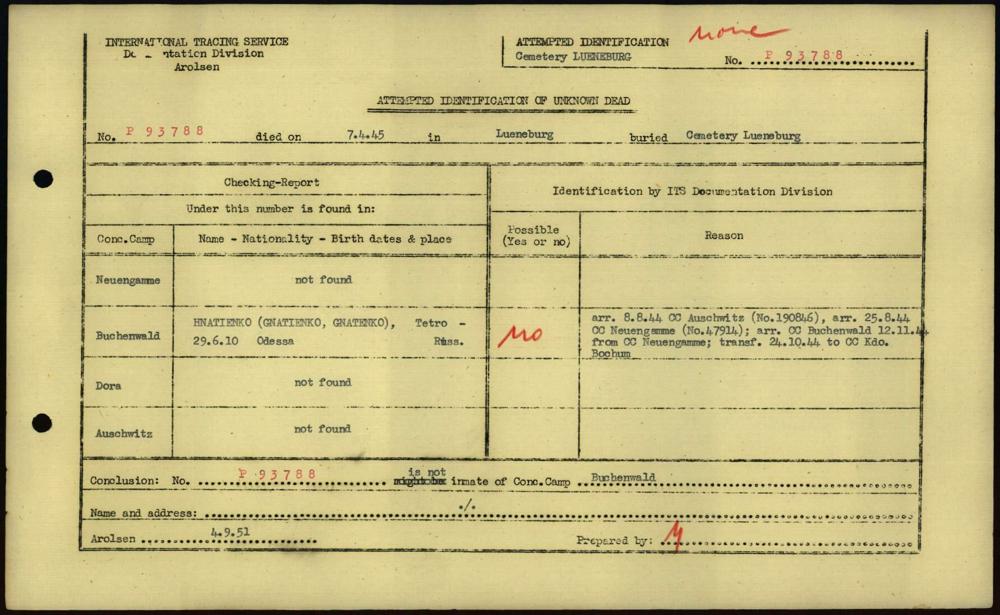 none
INTERNATIONAL TRACING SERVICE
Documentation Division
Arolsen
ATTEMPTED IDENTIFICATION
Cemetery LUENEBURG
No. P 93788
ATTEMPTED IDENTIFICATION OF UNKNOWN DEAD
No. P 93788 died on 7.4.45 in Lueneburg buried Cemetery Lueneburg
Checking-Report
Under this number is found in:
Identification by ITS Documentation Division
Conc.Camp
Name - Nationality - Birth dates & place
Possible
(Yes or no)
Reason
Neuengamme not found
Buchenwald
HNATIENKO (GNATIENKO, GNATENKO), Tetro -
29.6.10 Odessa Russ.
no
arr. 8.8.44 CC Auschwitz (No.190846), arr. 25.8.44
CC Neuengamme (No.47914); arr. CC Buchenwald 12.11.44
from CC Neuengamme; transf. 24.10.44 to CC Kdo.
Bochum
Dora not found
Auschwitz not found
Conclusion: No. P 93788 is not inmate of Conc.Camp Buchenwald
Name and address: ./.
Arolsen 4.9.51 Prepared by: